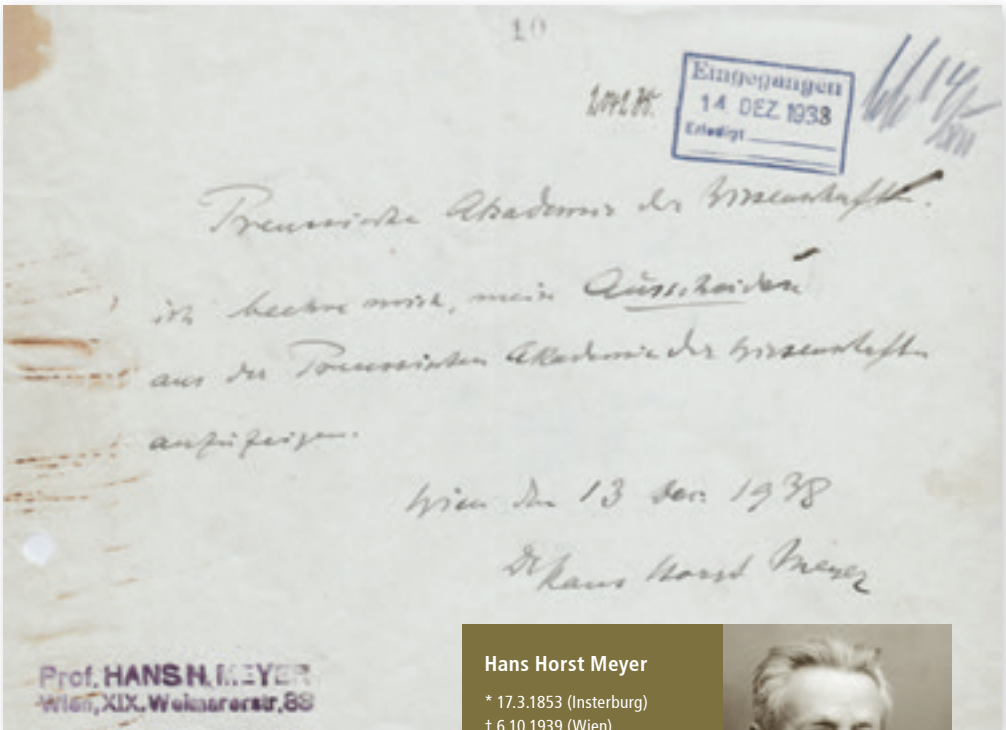 10
Eingegangen
14 DEZ. 1938
Erledigt
Preussische Akademie der Wissenschaften.
ich beehre mich, mein Ausscheiden
aus der Preussischen Akademie der Wissenschaften
anzuzeigen.
Wien den 13 Dez. 1938
Dr Hans Horst Meyer
Prof. HANS H. MEYER
Wien, XIX. Weimarerstr. 89
Hans Horst Meyer
* 17.3.1853 (Insterburg)
† 6.10.1939 (Wien)